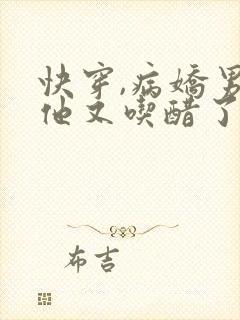 快穿,病嬌男
他又喫醋了
布吉